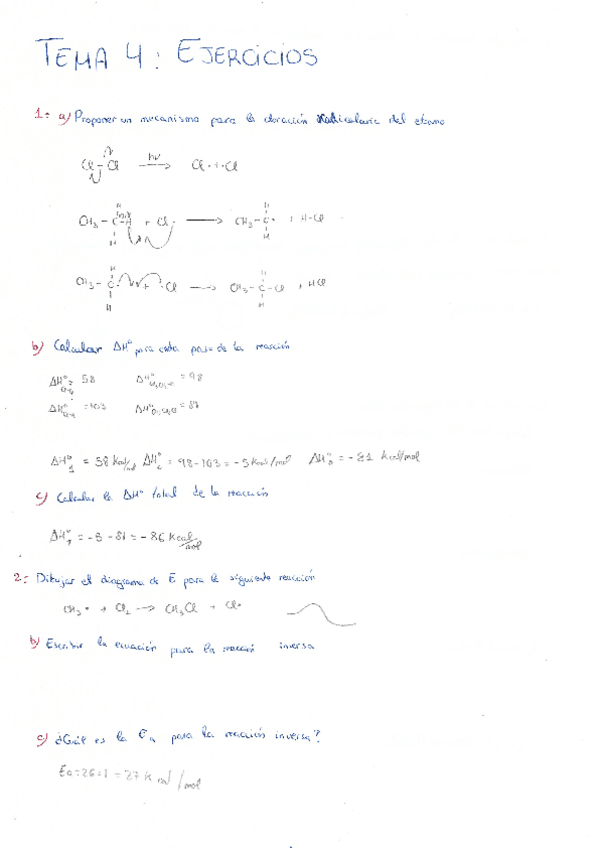 TEMA 4: EJERCICIOS
1: a) Proponer un mecanismo para la cloración radicalaria del etano
Cl-Cl hν → Cl· + ·Cl
CH3 - C - H + Cl· → CH3 - C· + H-Cl
CH3 - C· + ·Cl → CH3 - C - Cl + HCl
b) Calcular ΔHº para cada paso de la reacción
ΔHº = 58 ΔHº = 98
ΔHº = 103 ΔHº
ΔHº1 = 58 Kcal/mol ΔHº2 = 98-103 = -5 Kcal/mol ΔHº3 = -81 kcal/mol
c) Calcular la ΔHº total de la reacción
ΔHºT = -5 - 81 = -86 Kcal/mol
2: Dibujar el diagrama de E para la siguiente reacción
CH3· + Cl2 → CH3Cl + Cl·
b) Escribir la ecuación para la reacción inversa
c) ¿Cuál es la Ea para la reacción inversa?
Ea=26+1=27 K cal/mol